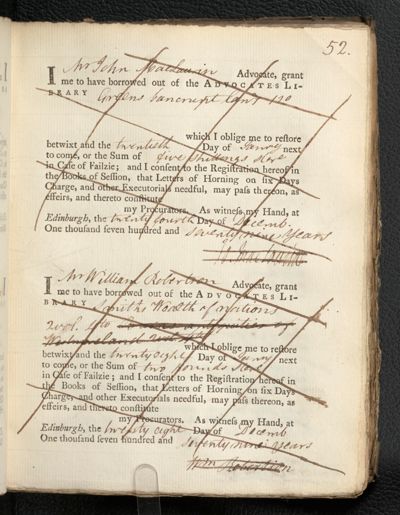 52.
I Mr John Maclaurin Advocate, grant
me to have borrowed out of the ADVOCATES LI-
BRARY Greens bancrupt laws 120
which I oblige me to reſtore
betwixt and the twentieth Day of Janry next
to come, or the Sum of five shillings Sterg
in Caſe of Failzie; and I conſent to the Regiſtration hereof in
the Books of Seſſion, that Letters of Horning on ſix Days
Charge, and other Executorials needful, may paſs thereon, as
effeirs, and thereto conſtitute
my Procurators. As witneſs my Hand, at
Edinburgh, the twenty fourth Day of Decemb.
One thouſand ſeven hundred and seventy nine Years
I Mr William Robertson Advocate, grant
me to have borrowed out of the ADVOCATES LI-
BRARY Smiths Wealth of nations
2 vol. 4to
which I oblige me to reſtore
betwixt and the twenty eight Day of Janry next
to come, or the Sum of two pounds Sterg
in Caſe of Failzie; and I conſent to the Regiſtration hereof in
the Books of Seſſion, that Letters of Horning on ſix Days
Charge, and other Executorials needful, may paſs thereon, as
effeirs, and thereto conſtitute
my Procurators. As witneſs my Hand, at
Edinburgh, the twenty eight Day of Decemb
One thouſand ſeven hundred and seventy nine years
Wm Robertson